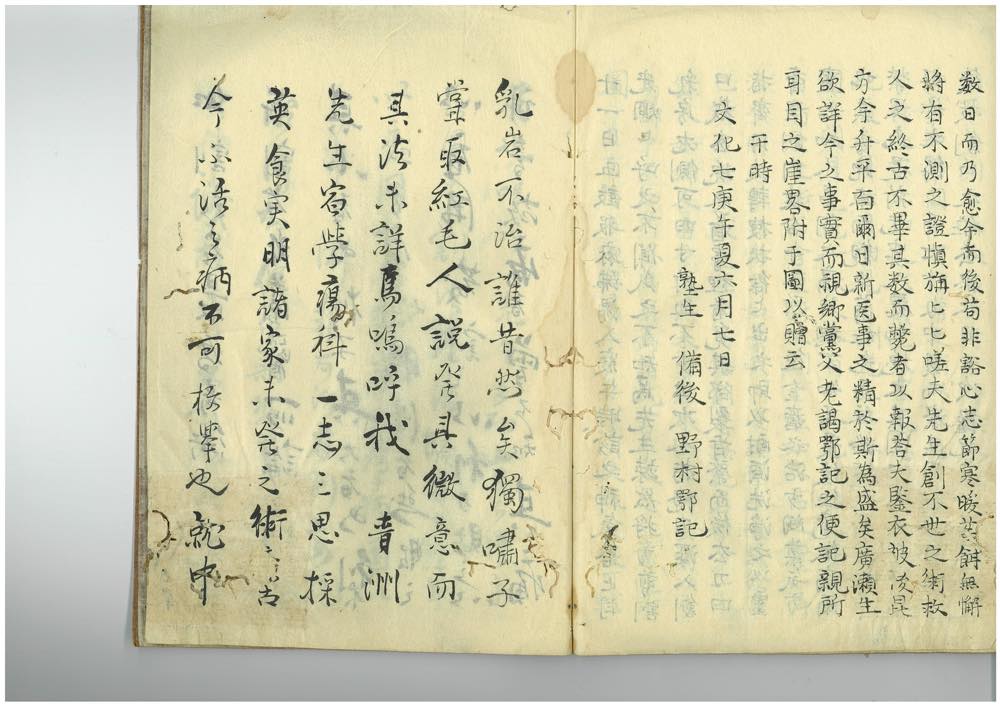 数日而乃愈今而後苟非谿心志節寒暖薬餌無懈
将有不測之證慎旃㐂㐂嗟夫先生創不世之術救
人之終古不畢其数而斃者以報答大鑒衣被凌昆
方余升平百爾日新医事之精於斯為盛矣廣瀬生
欲詳今之事實而視郷黨父老謁鄂記之便記親所
耳目之崖畧附于圖以贈云
于時
文化七庚午夏六月七日
塾生 備後 野村鄂記
乳岩不治誰昔然矣獨嘯子
嘗取紅毛人説発其微意而
其法未詳焉嗚呼我 青洲
先生宿學瘍科一志三思採
英食実明諸家未発之術方舌
今不活之病不可枚舉也就中